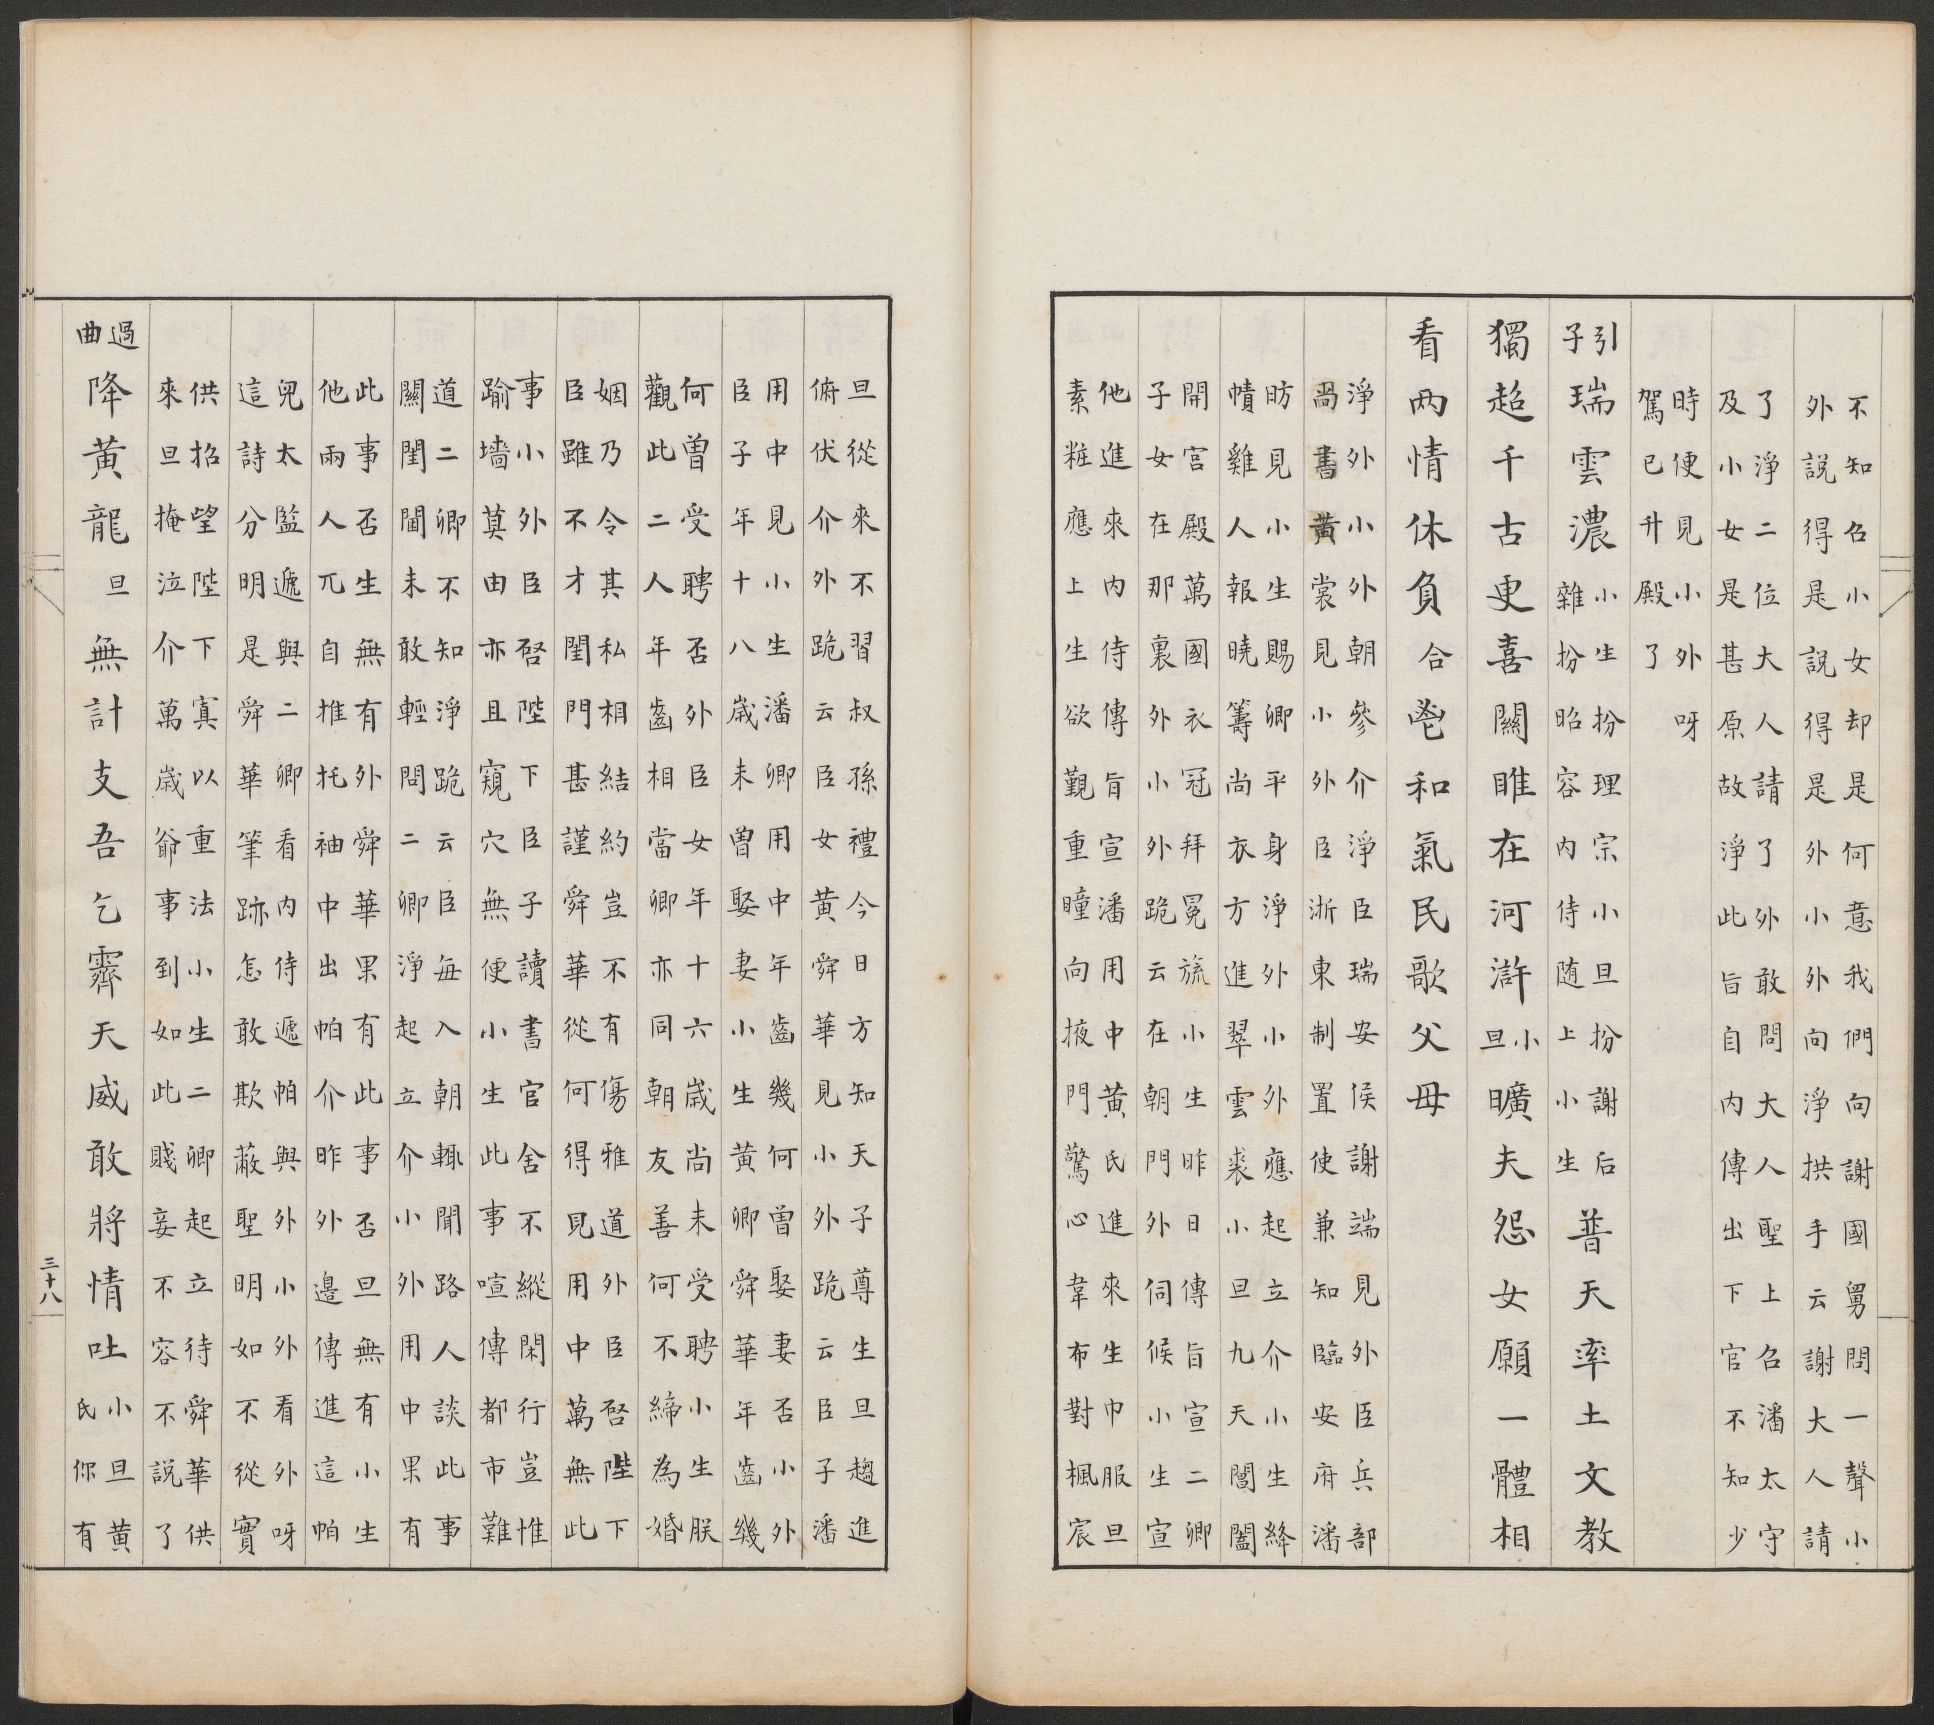 不知召小女却是何意我們向謝國舅問一聲小
外説得是説得是外小外向淨拱手云謝大人請
了淨二位大人請了外敢問大人聖上召潘太守
及小女是甚原故淨此旨自内傳出下官不知少
時便見小外呀
駕已升殿了
引子瑞雲濃小生扮理宗小旦扮謝后雜扮昭容内侍随上小生普天率土文教
獨超千古更喜關雎在河滸小旦曠夫怨女願一體相
看兩情休負合鬯和氣民歌父母
淨外小外朝參介淨臣瑞安侯謝端見外臣兵部
尚書黃裳見小外臣浙東制置使兼知臨安府潘
昉見小生賜卿平身淨外小外應起立介小生絳
幘雞人報曉籌尚衣方進翠雲裘小旦九天閶闔
開宫殿萬國衣冠拜冕旒小生昨日傳旨宣二卿
子女在那裏外小外跪云在朝門外伺候小生宣
他進來内侍傳旨宣潘用中黃氏進來生巾服旦
素粧應上生欲覲重瞳向掖門驚心韋布對楓宸
旦從來不習叔孫禮今日方知天子尊生旦趨進
俯伏介外跪云臣女黃舜華見小外跪云臣子潘
用中見小生潘卿用中年齒幾何曾娶妻否小外
臣子年十八歲未曾娶妻小生黃卿舜華年齒幾
何曾受聘否外臣女年十六歲尚未受聘小生朕
觀此二人年齒相當卿亦同朝友善何不締為婚
姻乃令其私相結約豈不有傷雅道外臣啓陛下
臣雖不才閨門甚謹舜華從何得見用中萬無此
事小外臣啓陛下臣子讀書官舍不縱閑行豈惟
踰墻莫由亦且窺穴無便小生此事喧傳都市難
道二卿不知淨跪云臣每入朝輙聞路人談此事
關閨閫未敢輕問二卿淨起立介小外用中果有
此事否生無有外舜華果有此事否旦無有小生
他兩人兀自推托袖中出帕介昨外邉傳進這帕
兒太監遞與二卿看内侍遞帕與外小外看外呀
這詩分明是舜華筆跡怎敢欺蔽聖明如不從實
供招望陛下寘以重法小生二卿起立待舜華供
來旦掩泣介萬歲爺事到如此賤妾不容不説了
過曲降黃龍旦無計支吾乞霽天威敢將情吐小旦黃氏你有
三十八